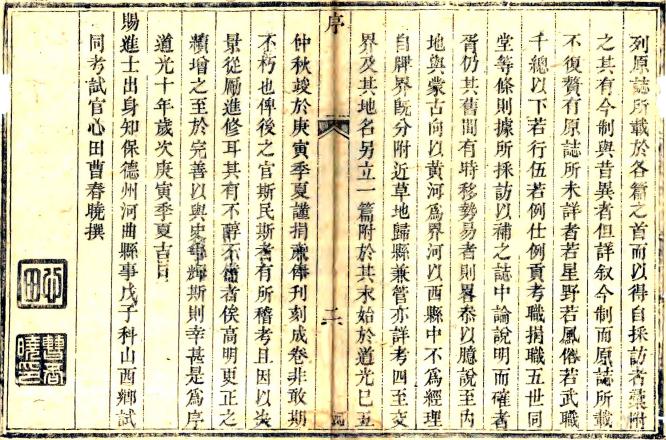 列原誌所載於各篇之首而以得自採訪者謹附
之其有今制與昔異者但詳叙今制而原誌所載
不復贅有原誌所未詳者若星野若風俗若武職
千總以下若行伍若例仕例貢考職捐職五世同
堂等條則據所採訪以補之誌中論說明而確者
胥仍其舊間有時移勢易者則畧叅以臆說至內
地與蒙古向以黃河為界河以西縣中不為經理
自牌界既分附近草地歸縣兼管亦詳考四至交
界及其地名另立一篇附於其末始於道光巳丑
序
二
仲秋竣於庚寅季夏謹捐廉俸刊刻成卷非敢期
不朽也俾後之官斯民斯者有所稽考且因以
景從勵進修耳其有不醇不備者俟高明更正之
續增之至於完善以與史乘輝斯則幸甚是為序
道光十年歲次庚寅季夏吉日
賜進士出身知保德州河曲縣事戊子科山西鄉試
同考試官心田曹春曉撰
心田
曹春曉印